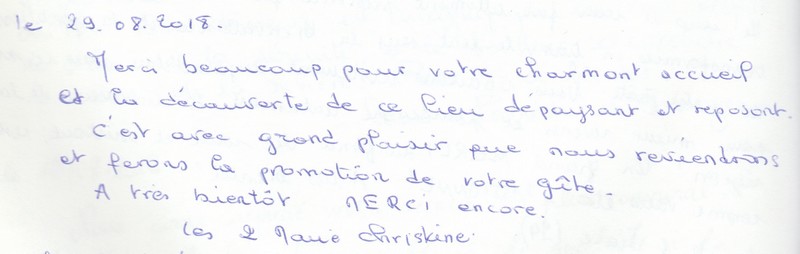 le 29.08.2018.
Merci beaucoup pour votre charmant accueil
et la découverte de ce lieu dépaysant et reposant.
C'est avec grand plaisir que nous reviendrons
et ferons la promotion de votre gîte.
A très bientôt MERCI encore.
Les 2 Marie Christine.